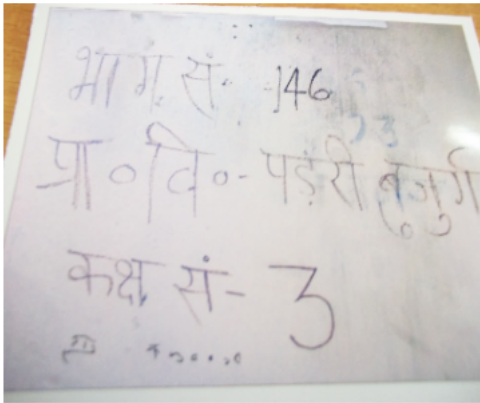 भाग सं. - 146
प्रा०वि०- पड़री बुजुर्ग
कक्ष सं- 3